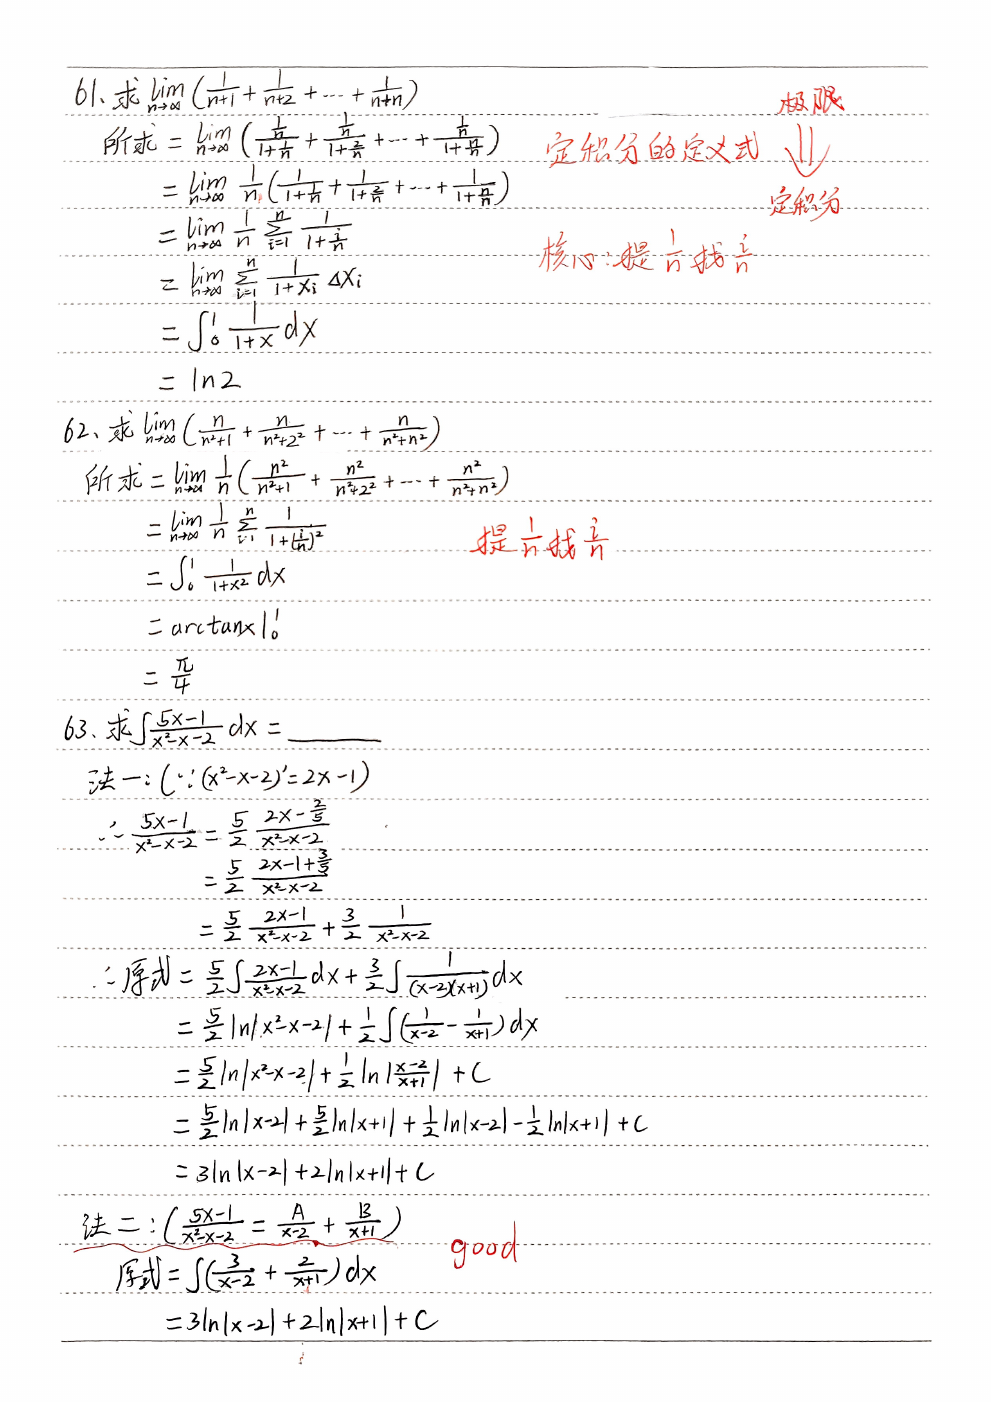 61、求lim n→∞ (1/(n+1) + 1/(n+2) + ⋯ + 1/(n+n))
极限
所求 = lim n→∞ ((1/n)/(1+1/n) + (1/n)/(1+2/n) + ⋯ + (1/n)/(1+n/n))
定积分的定义式 ⇓
= lim n→∞ 1/n (1/(1+1/n) + 1/(1+2/n) + ⋯ + 1/(1+n/n))
定积分
= lim n→∞ 1/n Σ i=1 n 1/(1+i/n)
核心:提 1/n 找 i/n
= lim n→∞ Σ i=1 n 1/(1+xi) Δxi
= ∫₀¹ 1/(1+x) dx
= ln2
62、求lim n→∞ (n/(n²+1) + n/(n²+2²) + ⋯ + n/(n²+n²))
所求 = lim n→∞ 1/n (n²/(n²+1) + n²/(n²+2²) + ⋯ + n²/(n²+n²))
= lim n→∞ 1/n Σ i=1 n 1/(1+(i/n)²)
提 1/n 找 i/n
= ∫₀¹ 1/(1+x²) dx
= arctanx|₀¹
= π/4
63、求∫ (5x-1)/(x²-x-2) dx = ______
法一:(∵(x²-x-2)′=2x-1)
∴ (5x-1)/(x²-x-2) = 5/2 (2x-2/5)/(x²-x-2)
= 5/2 (2x-1+3/5)/(x²-x-2)
= 5/2 (2x-1)/(x²-x-2) + 3/2 1/(x²-x-2)
∴原式 = 5/2 ∫ (2x-1)/(x²-x-2) dx + 3/2 ∫ 1/((x-2)(x+1)) dx
= 5/2 ln|x²-x-2| + 1/2 ∫(1/(x-2) - 1/(x+1)) dx
= 5/2 ln|x²-x-2| + 1/2 ln|(x-2)/(x+1)| + C
= 5/2 ln|x-2| + 5/2 ln|x+1| + 1/2 ln|x-2| - 1/2 ln|x+1| + C
= 3ln|x-2| + 2ln|x+1| + C
法二:((5x-1)/(x²-x-2) = A/(x-2) + B/(x+1))
good
原式 = ∫(3/(x-2) + 2/(x+1)) dx
= 3ln|x-2| + 2ln|x+1| + C